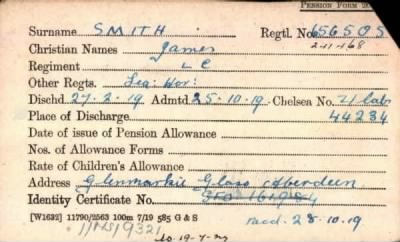 PENSION FORM 20
Surname SMITH Regtl. No. 656505
Christian Names James 241168
Regiment LC
Other Regts. Sea: Hor:
Dischd 27.2.19. Admtd 25-10-19. Chelsea No. U lab
Place of Discharge 44234
Date of issue of Pension Allowance
Nos. of Allowance Forms
Rate of Children's Allowance
Address Glenmarkie Glass Aberdeen
Identity Certificate No.
[W1632] 11790/2563 100m 7/19 585 G & S recd. 28.10.19